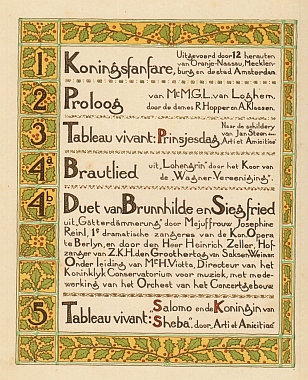 1 Koningsfanfare, Uitgevoerd door 12 herauten
van Oranje-Nassau, Mecklen-
burg en de stad Amsterdam.
2 Proloog van Mr M.G.L. van Loghem,
door de dames R. Hopper en A. Klassen.
3 Tableau vivant: Prinsjesdag, Naar de schildery
van Jan Steen door
Arti et Amicitiae
4a Brautlied uit "Lohengrin" door het Koor van
de "Wagner-Vereeniging".
4b Duet van Brunnhilde en Siegfried
uit "Götterdämmerung" door Mejuffrouw Josephine
Reinl, 1e dramatische zangeres van de Kon. Opera
te Berlyn, en door den Heer Heinrich Zeller, Hof
zanger van Z.K.H. den Groothertog van Saksen Weimar.
Onder leiding van Mr H. Viotta, Directeur van het
Koninklyk Conservatorium voor muziek, met mede-
werking van het Orchest van het Concertgebouw
5 Tableau vivant: "Salomo en de Koningin van
Sheba", door "Arti et Amicitiae"